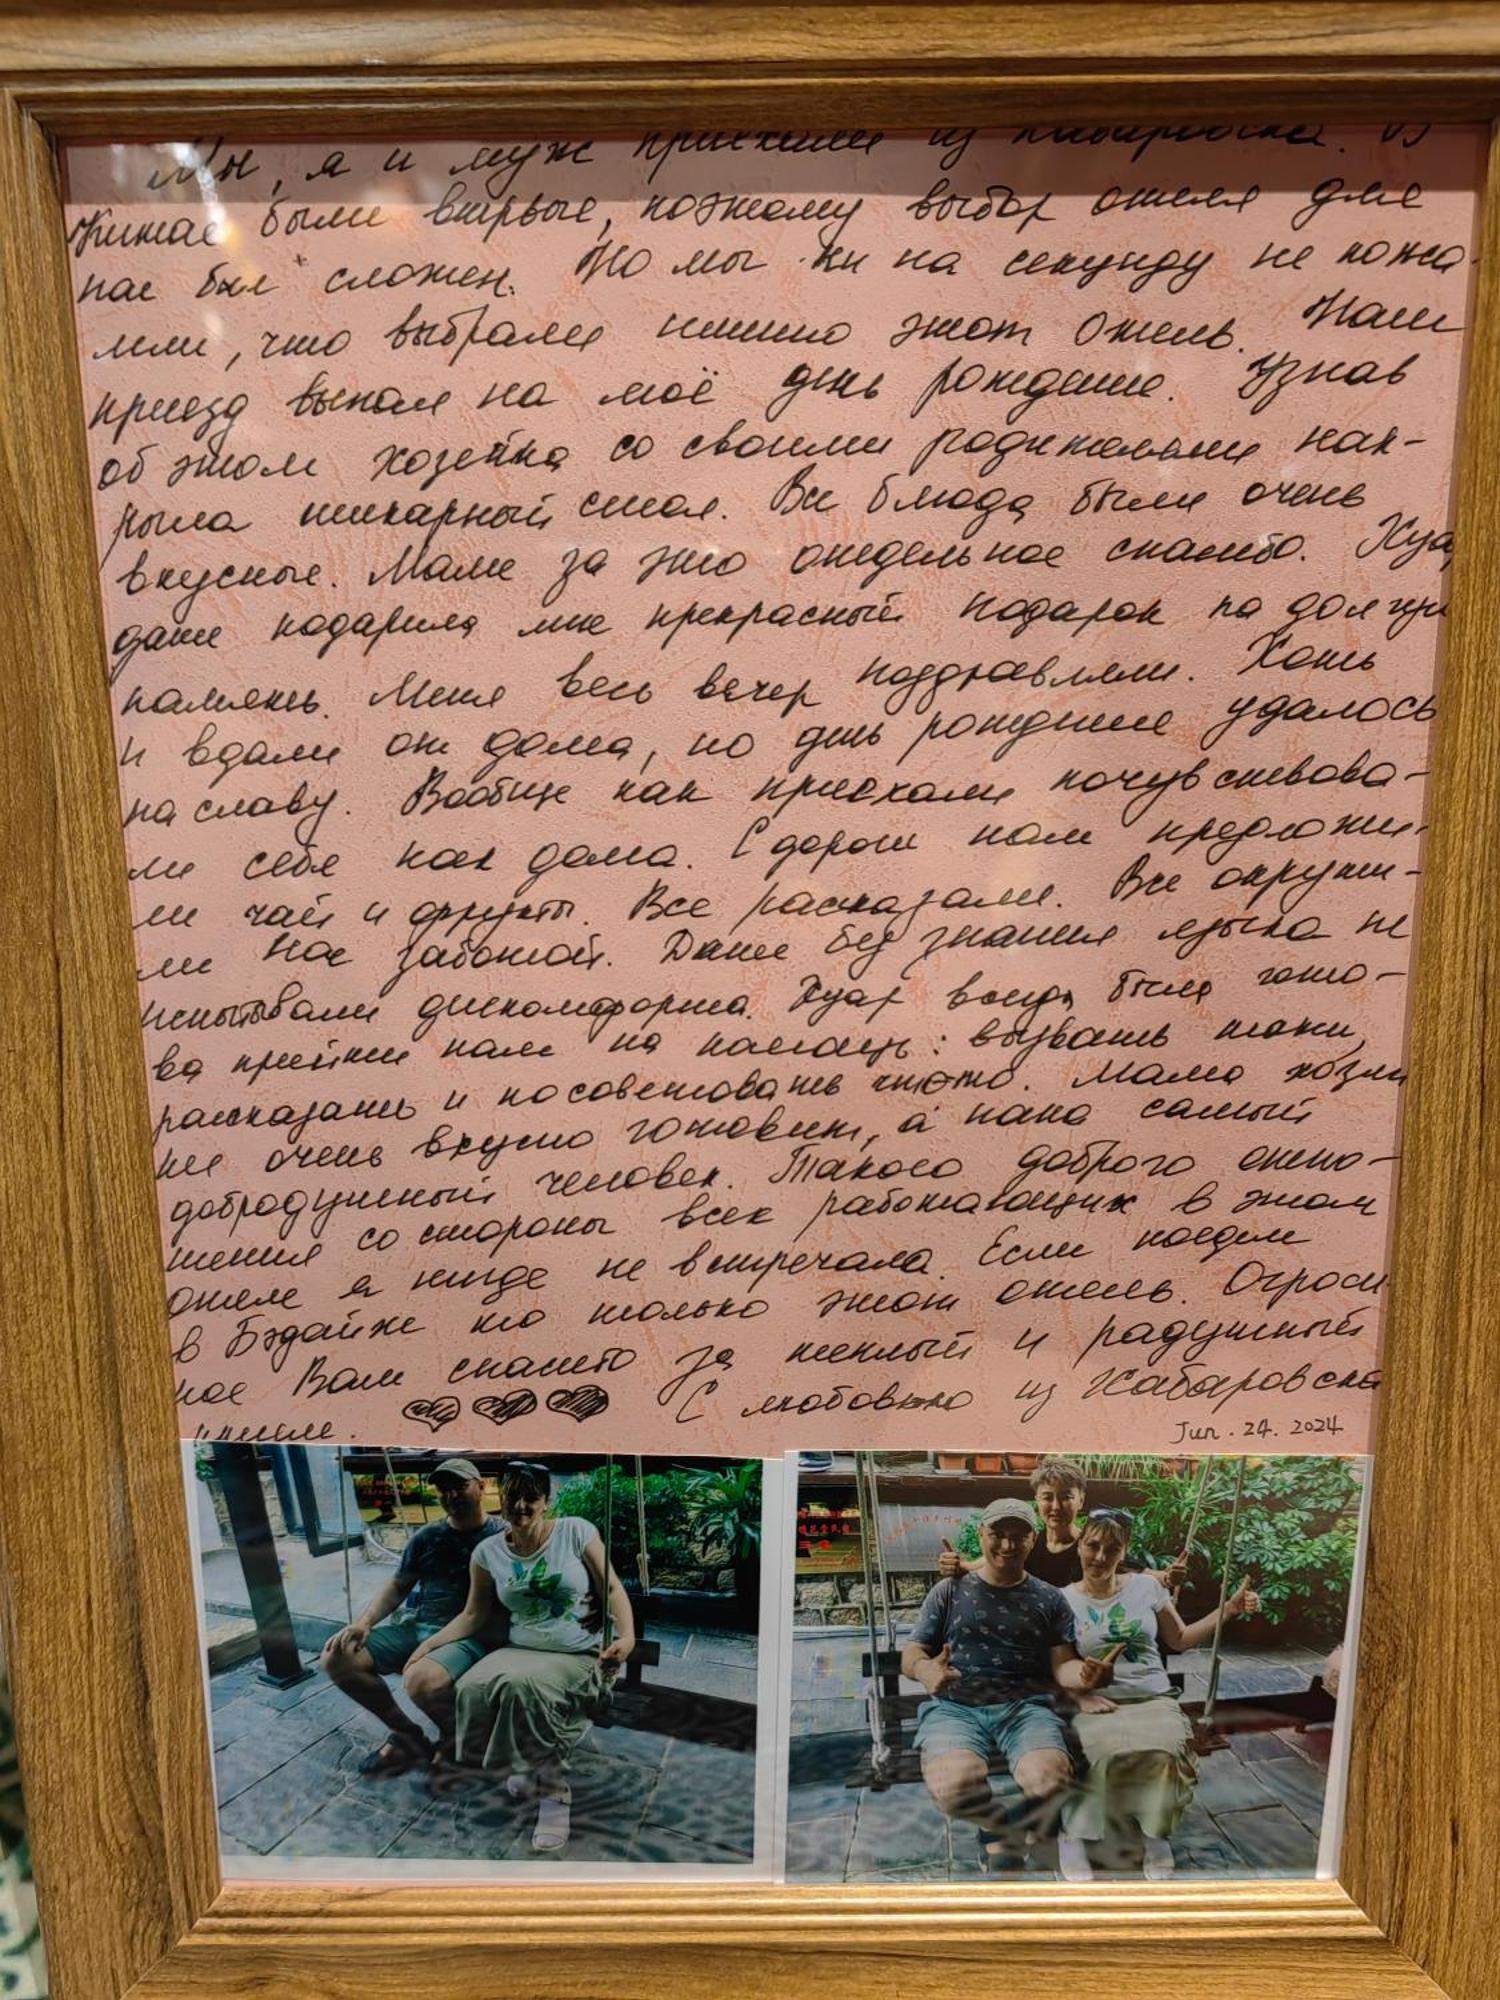 Мы, я и муж приехали из Хабаровска. В
Китае были впервые, поэтому выбор отеля для
нас был сложен. Но мы ни на секунду не пожа-
лели, что выбрали именно этот Отель. Наш
приезд выпал на моё день рождение. Узнав
об этом хозейка со своими родителями нак-
рыла шикарный стол. Все блюда были очень
вкусные. Маме за это отдельное спасибо. Хуа,
даже подарила мне прекрасный подарок на долгую
память. Меня весь вечер поздравляли. Хоть
и вдали от дома, но день рождение удалось
на славу. Вообще как приехали почувствова-
ли себя как дома. С дороги нам предложи-
ли чай и фрукты. Все рассказали. Все окружи-
ли нас заботой. Даже без знания языка не
испытывали дискомфорта. всегда была гото-
ва прийти нам на помощь: вызвать такси,
рассказать и посоветовать что-то. Мама хозяй
ке очень вкусно готовит, а папа самый
добродушный человек. Такого доброго отно-
шения со стороны всех работающих в этом
отеле я нигде не встречала. Если поедем
в Бэдайхе то только этот отель. Огром-
ное Вам спасибо за теплый и радушный
прием. С любовью из Хабаровска
Jun. 24. 2024